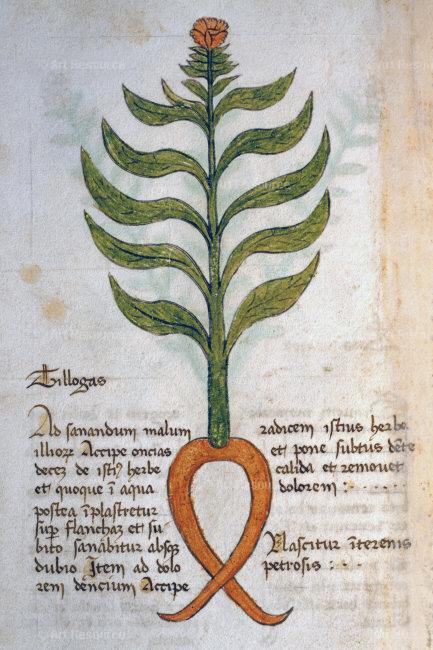 Tillogas
Ad sanandum malum
illioꝝ Accipe oncias
decez de isti9 herbe
et quoque ī aqua
postea īplastretur
suꝑ flanchaz et su
bito sanabitur absqꝫ
dubio Item ad dolo
rem dencium Accipe
radicem istius herbe
et pone subtus dēte
calida et removet
dolorem : · — · — ·
Nascitur īterenis
petrosis : · — ·